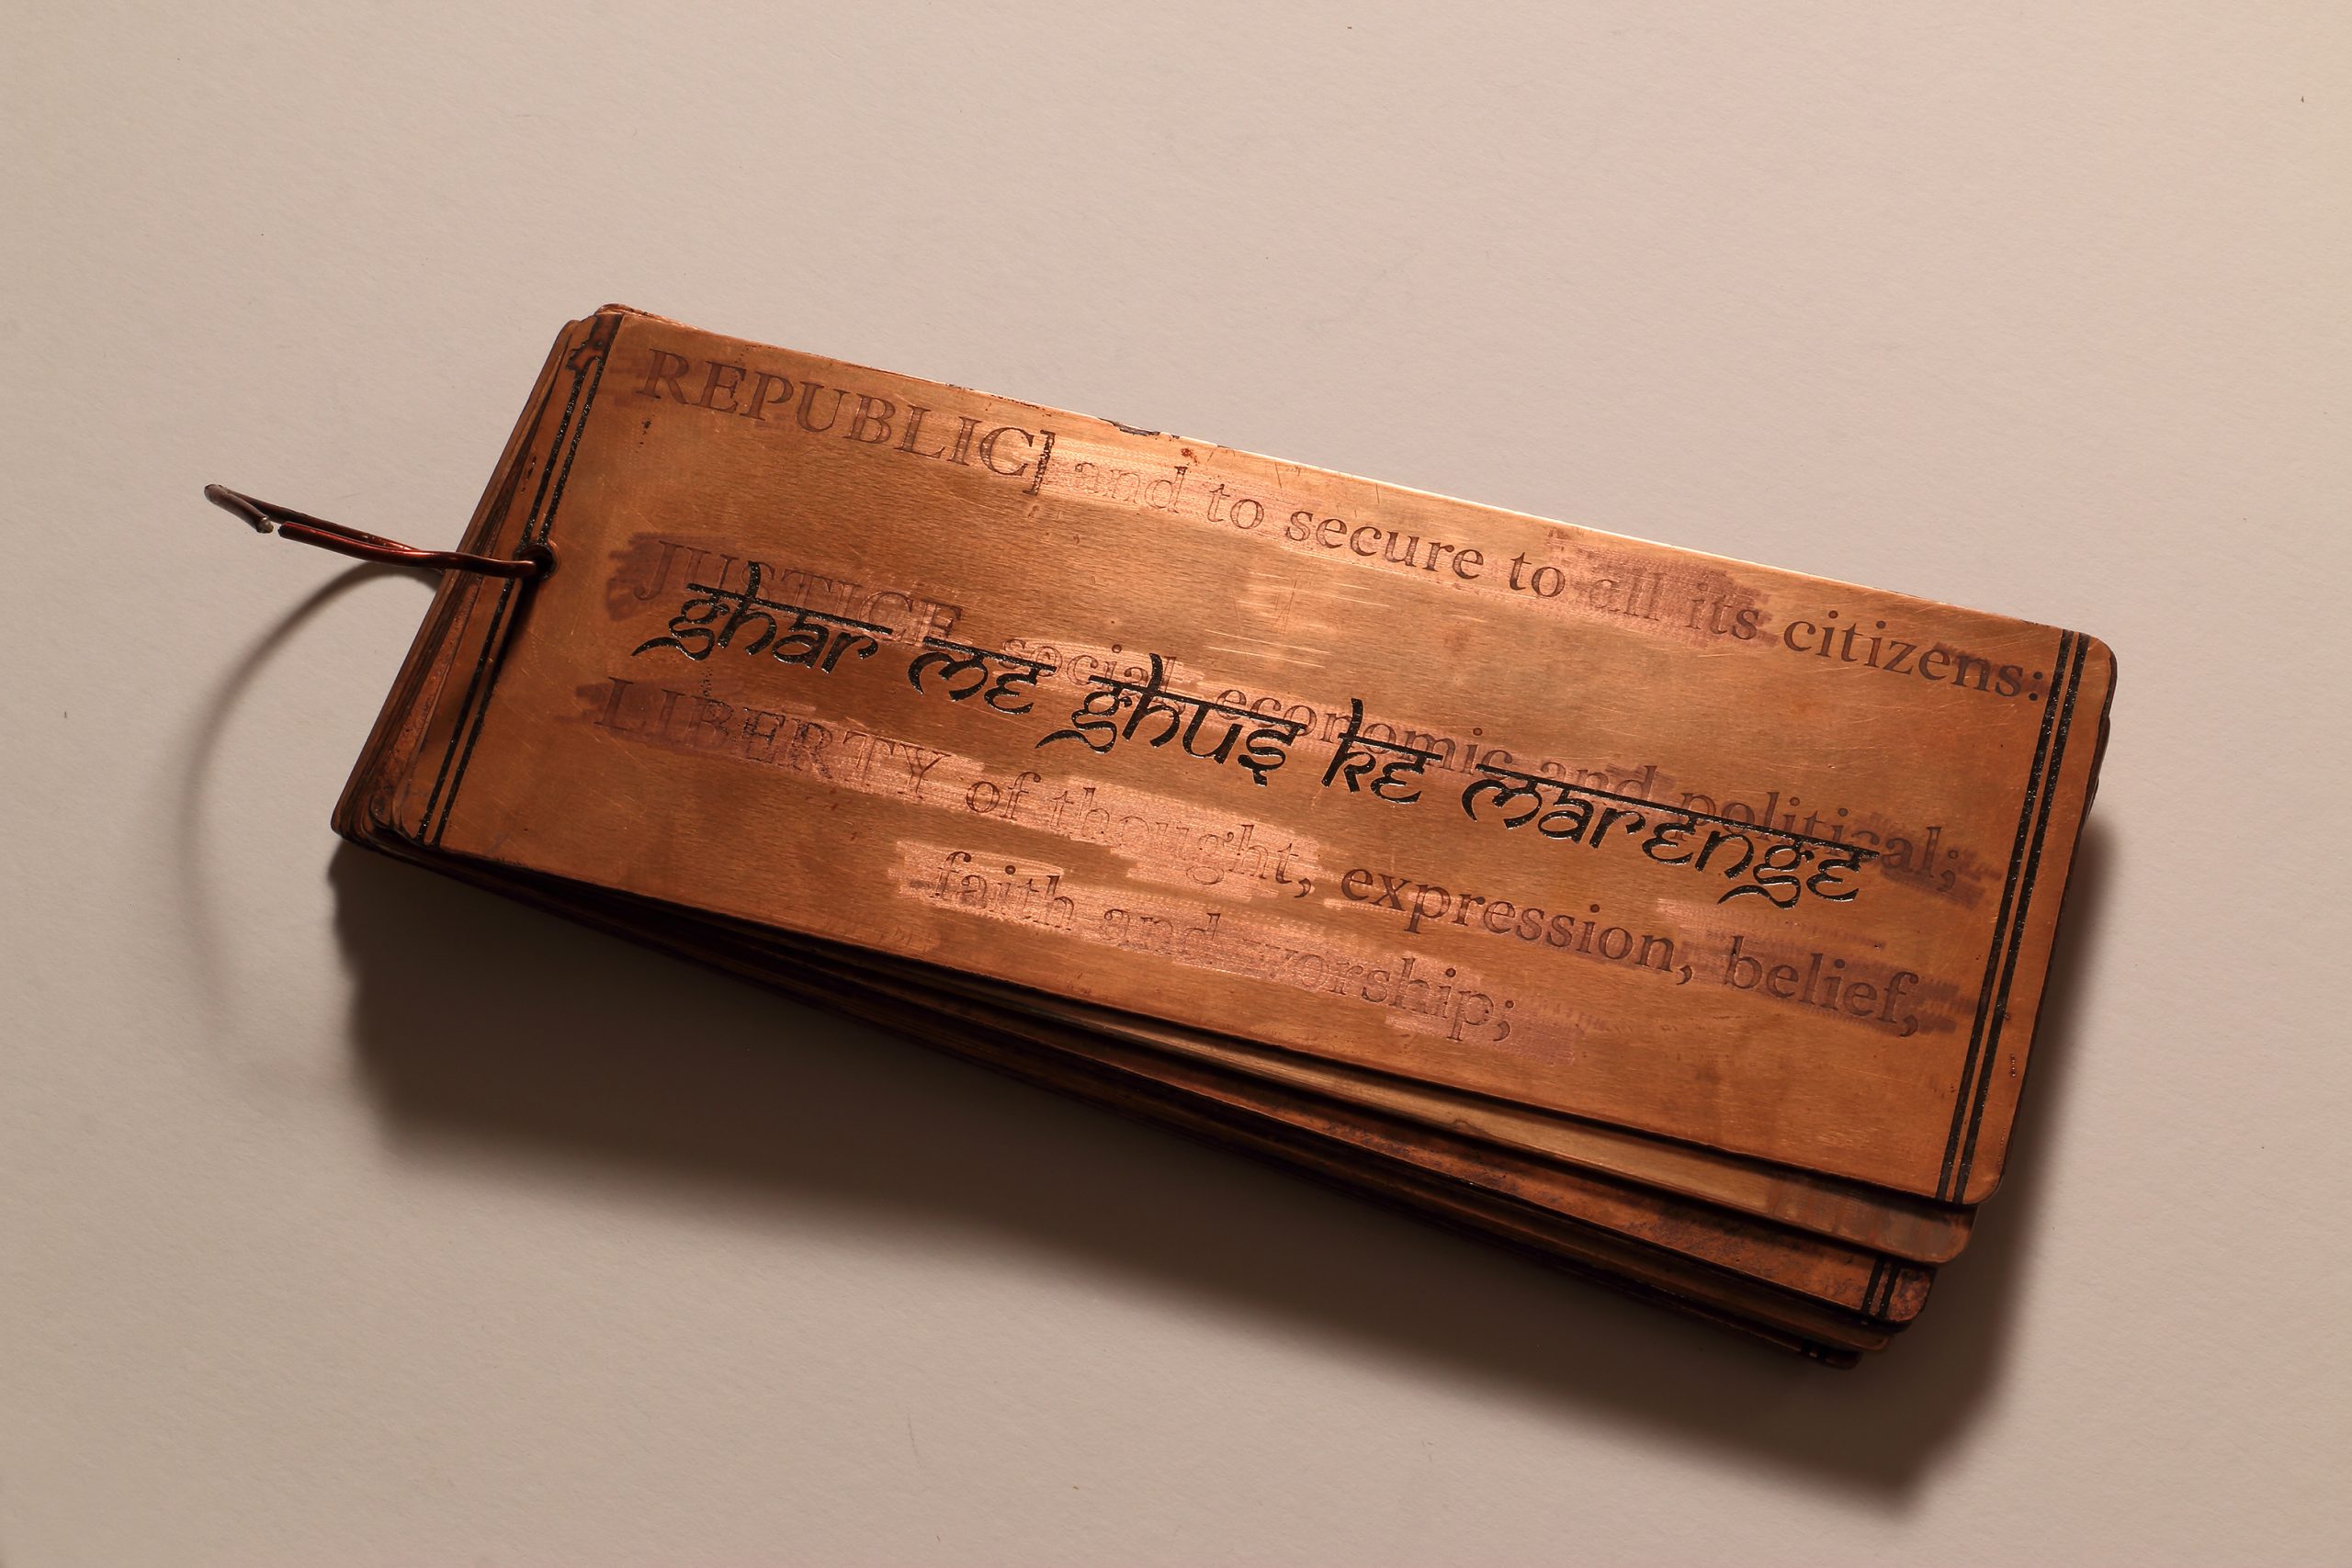 REPUBLIC] and to secure to all its citizens:
JUSTICE, social, economic and political;
ghar me ghus ke marenge
LIBERTY of thought, expression, belief,
faith and worship;